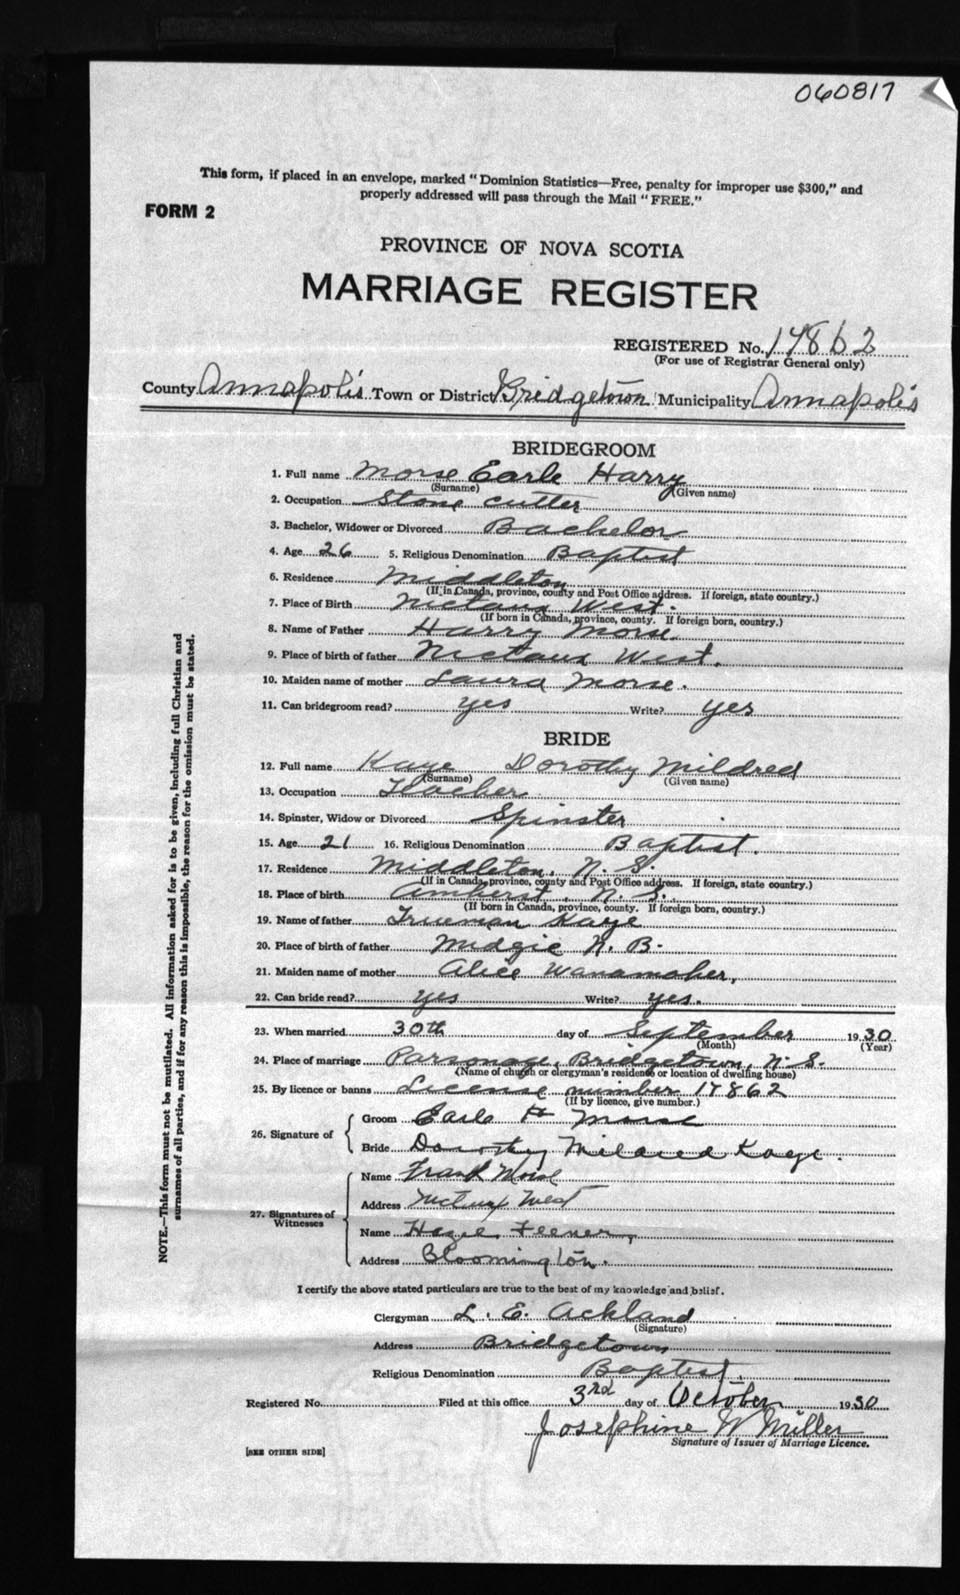 060817
This form, if placed in an envelope, marked "Dominion Statistics—Free, penalty for improper use $300," and
properly addressed will pass through the Mail "FREE."
FORM 2
PROVINCE OF NOVA SCOTIA
MARRIAGE REGISTER
REGISTERED No. 17862
(For use of Registrar General only)
County Annapolis Town or District Bridgetown Municipality Annapolis
BRIDEGROOM
1. Full name Morse Earle Harry
(Surname) (Given name)
2. Occupation Stone cutter
3. Bachelor, Widower or Divorced Bachelor
4. Age 26 5. Religious Denomination Baptist
6. Residence Middleton
(If in Canada, province, county and Post Office address. If foreign, state country.)
7. Place of Birth Nictaux West.
(If born in Canada, province, county. If foreign born, country.)
8. Name of Father Harry Morse.
9. Place of birth of father Nictaux West.
10. Maiden name of mother Laura Morse.
11. Can bridegroom read? yes Write? yes
BRIDE
12. Full name Kaye Dorothy Mildred
(Surname) (Given name)
13. Occupation Teacher
14. Spinster, Widow or Divorced Spinster
15. Age 21 16. Religious Denomination Baptist.
17. Residence Middleton, N. S.
(If in Canada, province, county and Post Office address. If foreign, state country.)
18. Place of birth Amherst, N. S.
(If born in Canada, province, county. If foreign born, country.)
19. Name of father Trueman Kaye
20. Place of birth of father Midgic N. B.
21. Maiden name of mother Alice Wanamaker,
22. Can bride read? yes Write? yes.
23. When married 30th day of September 1930
(Month) (Year)
24. Place of marriage Parsonage, Bridgetown, N. S.
(Name of church or clergyman's residence or location of dwelling house)
25. By licence or banns License number 17862
(If by licence, give number.)
26. Signature of
Groom Earle H Morse
Bride Dorothy Mildred Kaye.
27. Signatures of Witnesses
Name Frank Morse
Address Nictaux West
Name Hazel Feener,
Address Bloomington.
I certify the above stated particulars are true to the best of my knowledge and belief.
Clergyman L. E. Ackland
(Signature)
Address Bridgetown
Religious Denomination Baptist.
Registered No. Filed at this office 3rd day of October 1930
Josephine W Miller
Signature of Issuer of Marriage Licence.
[SEE OTHER SIDE]
NOTE.—This form must not be mutilated. All information asked for is to be given, including full Christian and
surnames of all parties, and if for any reason this is impossible, the reason for the omission must be stated.